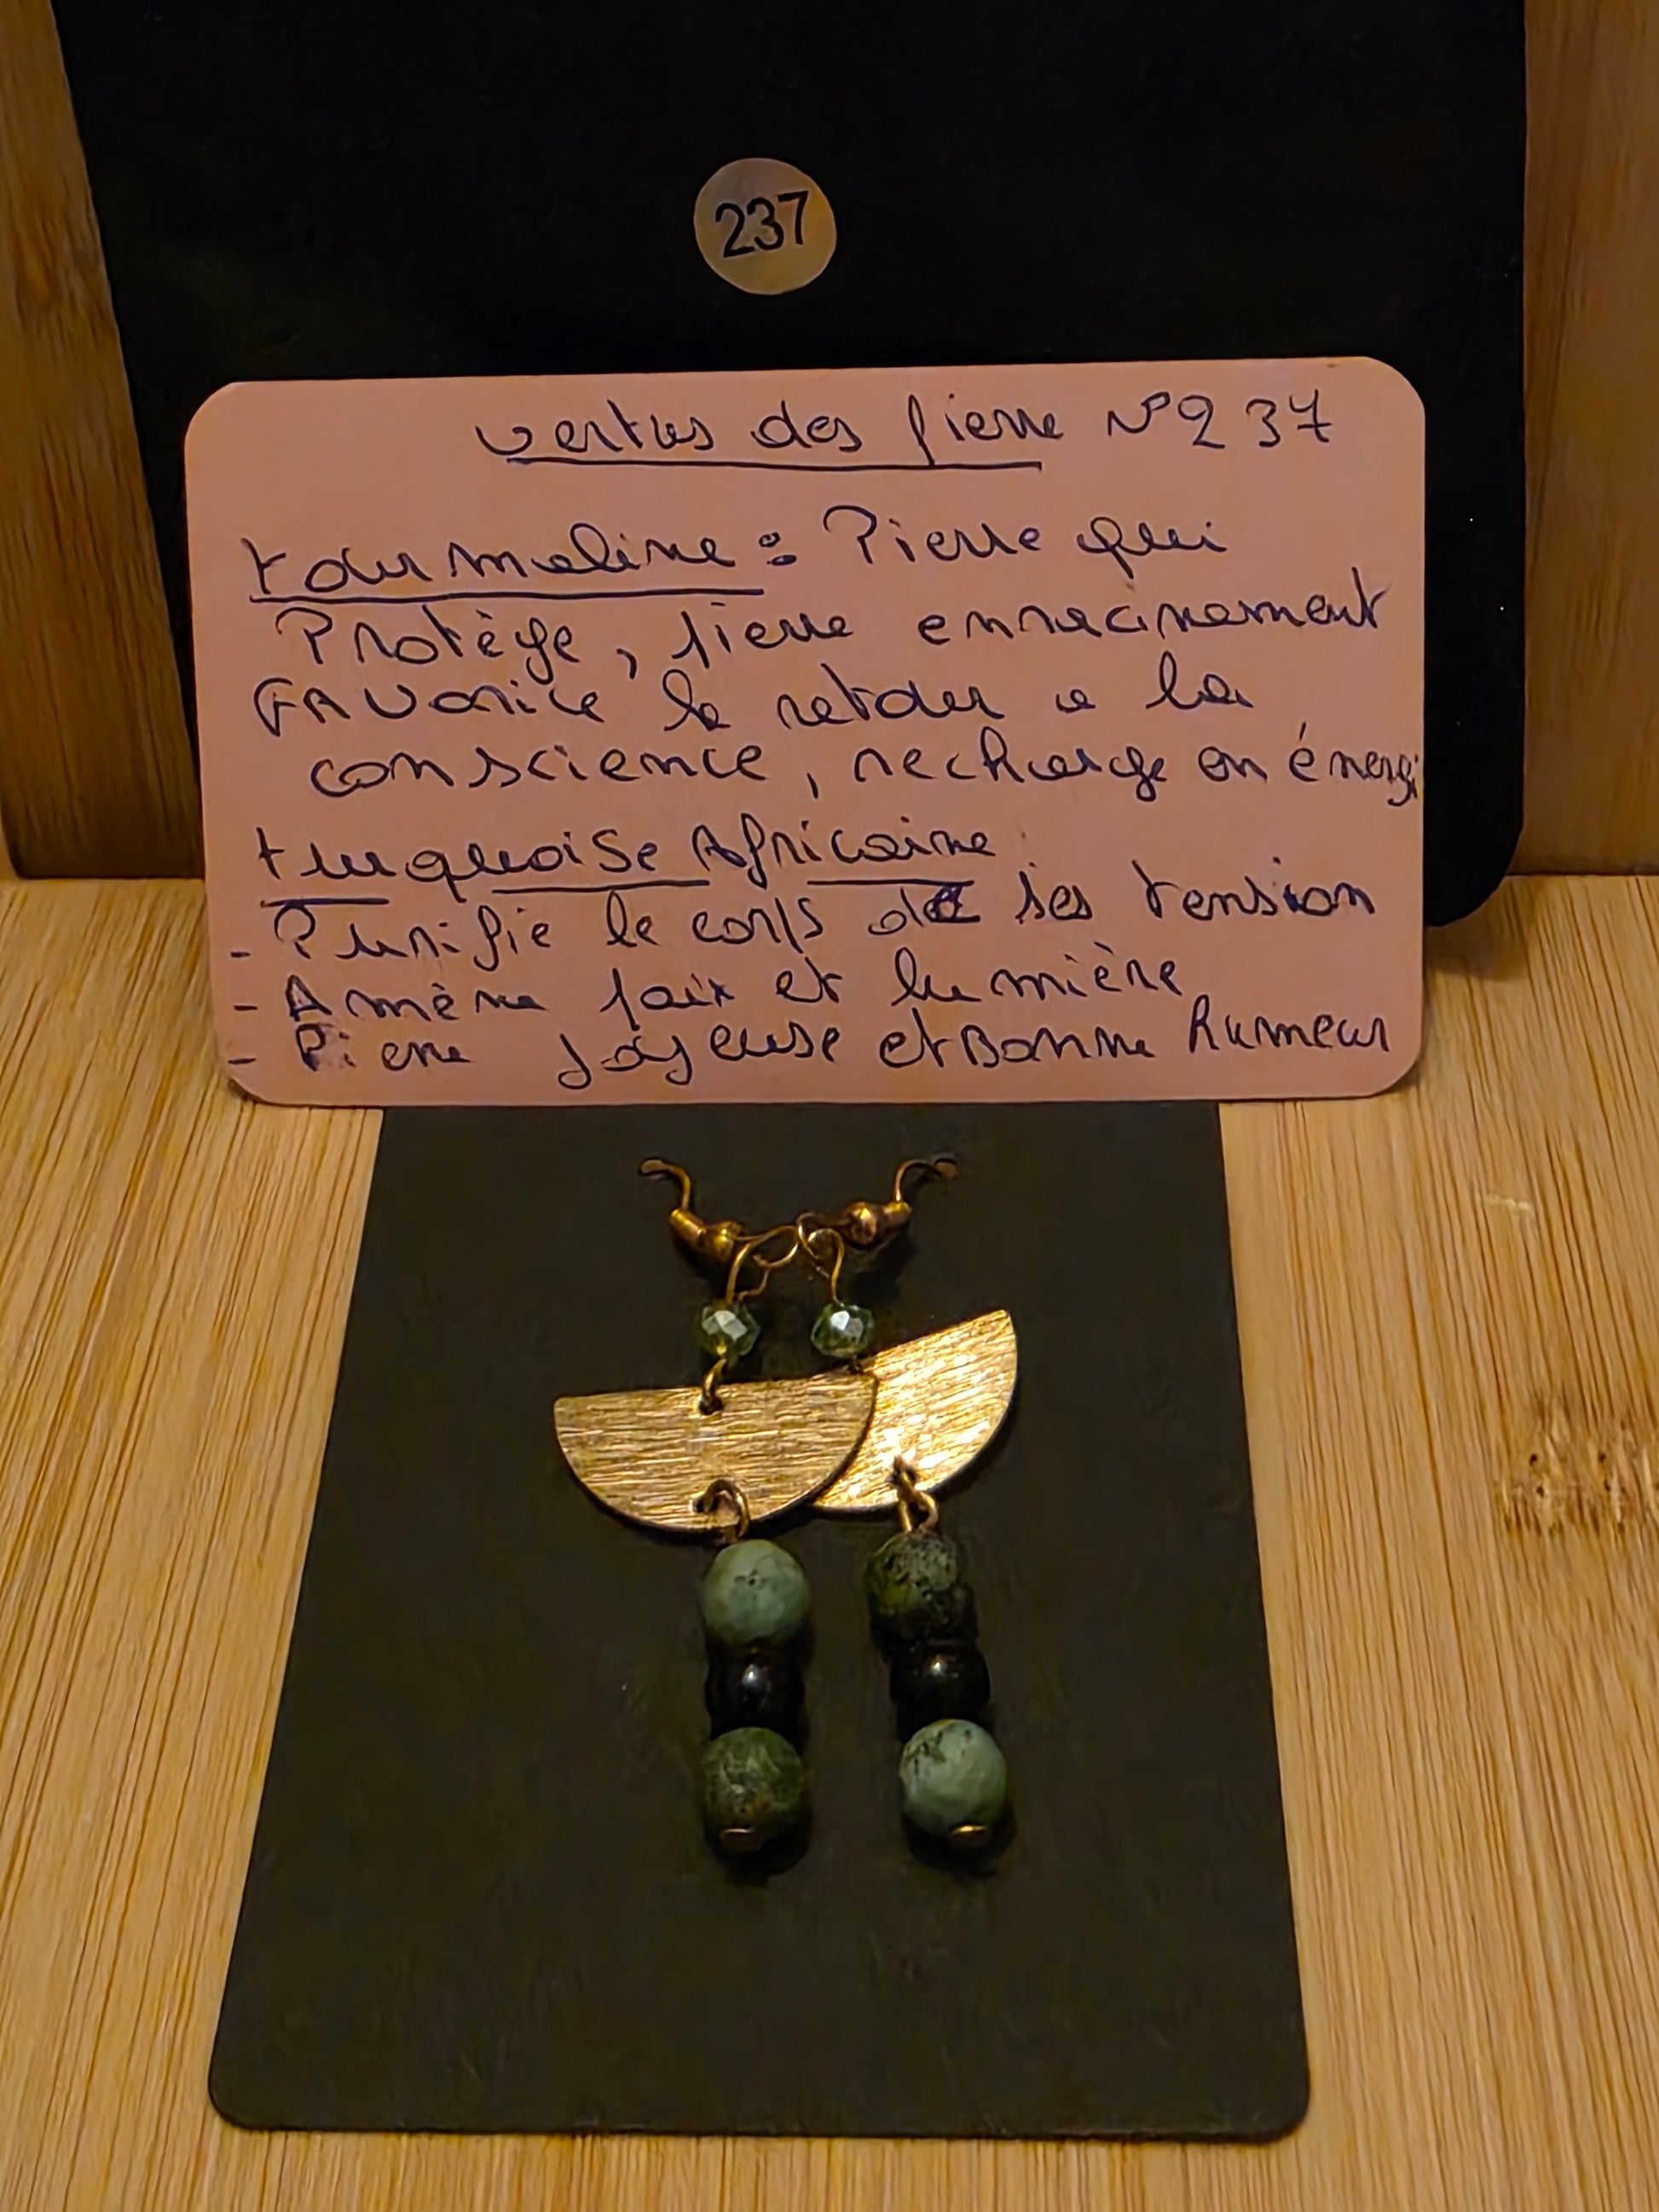 237
vertus des pierre N° 237
tourmaline : Pierre qui
Protège, pierre enracinement
FAVorice le retour a la
conscience, recharge en énergi
turquoise Africaine
- Purifie le corps de ses tension
- Amène paix et lumière
- Pierre Joyeuse et Bonne humeur